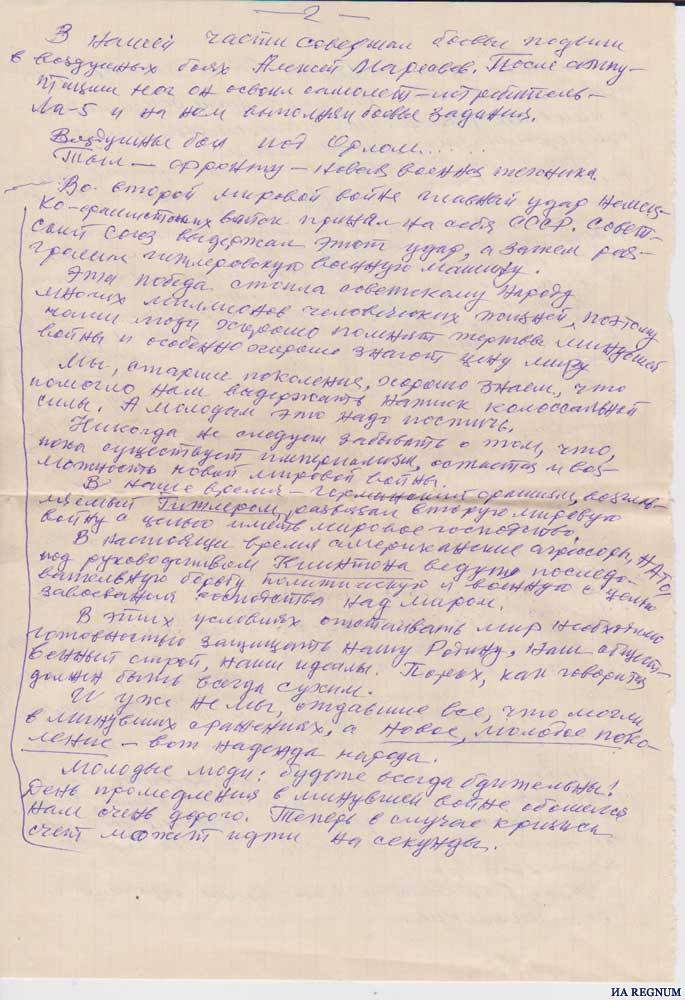 — 2 —
В нашей части совершал боевые подвиги
в воздушных боях Алексей Маресьев. После ампу-
тации ног он освоил самолет-истребитель-
Ла-5 и на нем выполнял боевые задания.
Воздушные бои под Орлом.....
Тыл — фронту — новая военная техника.
Во второй мировой войне главный удар немец-
ко-фашистских войск принял на себя СССР. Совет-
ский Союз выдержал этот удар, а затем раз-
громил гитлеровскую военную машину.
Эта победа стоила советскому народу
многих миллионов человеческих жизней, поэтому
наши люди хорошо помнят жертвы минувшей
войны и особенно хорошо знают цену миру
Мы, старшие поколения, хорошо знаем, что
помогло нам выдержать натиск колоссальной
силы. А молодым это надо постичь.
Никогда не следует забывать о том, что,
пока существует империализм, остается и воз-
можность новой мировой войны.
В наше время — германский фашизм, возглав-
ляемый Гитлером, развязал вторую мировую
войну с целью иметь мировое господство.
В настоящее время американские агрессоры, НАТО,
под руководством Клинтона ведут последо-
вательную борьбу политическую и военную с целью
завоевания господства над миром.
В этих условиях отстаивать мир необходимо
готовностью защищать нашу Родину, наш общест-
венный строй, наши идеалы. Порох, как говорится
должен быть всегда сухим.
И уже не мы, отдавшие все, что могли
в минувших сражениях, а новое, молодое поко-
ление — вот надежда народа.
Молодые люди: будьте всегда бдительны!
День промедления в минувшей войне обошелся
нам очень дорого. Теперь в случае кризиса
счет может идти на секунды.
ИА REGNUM